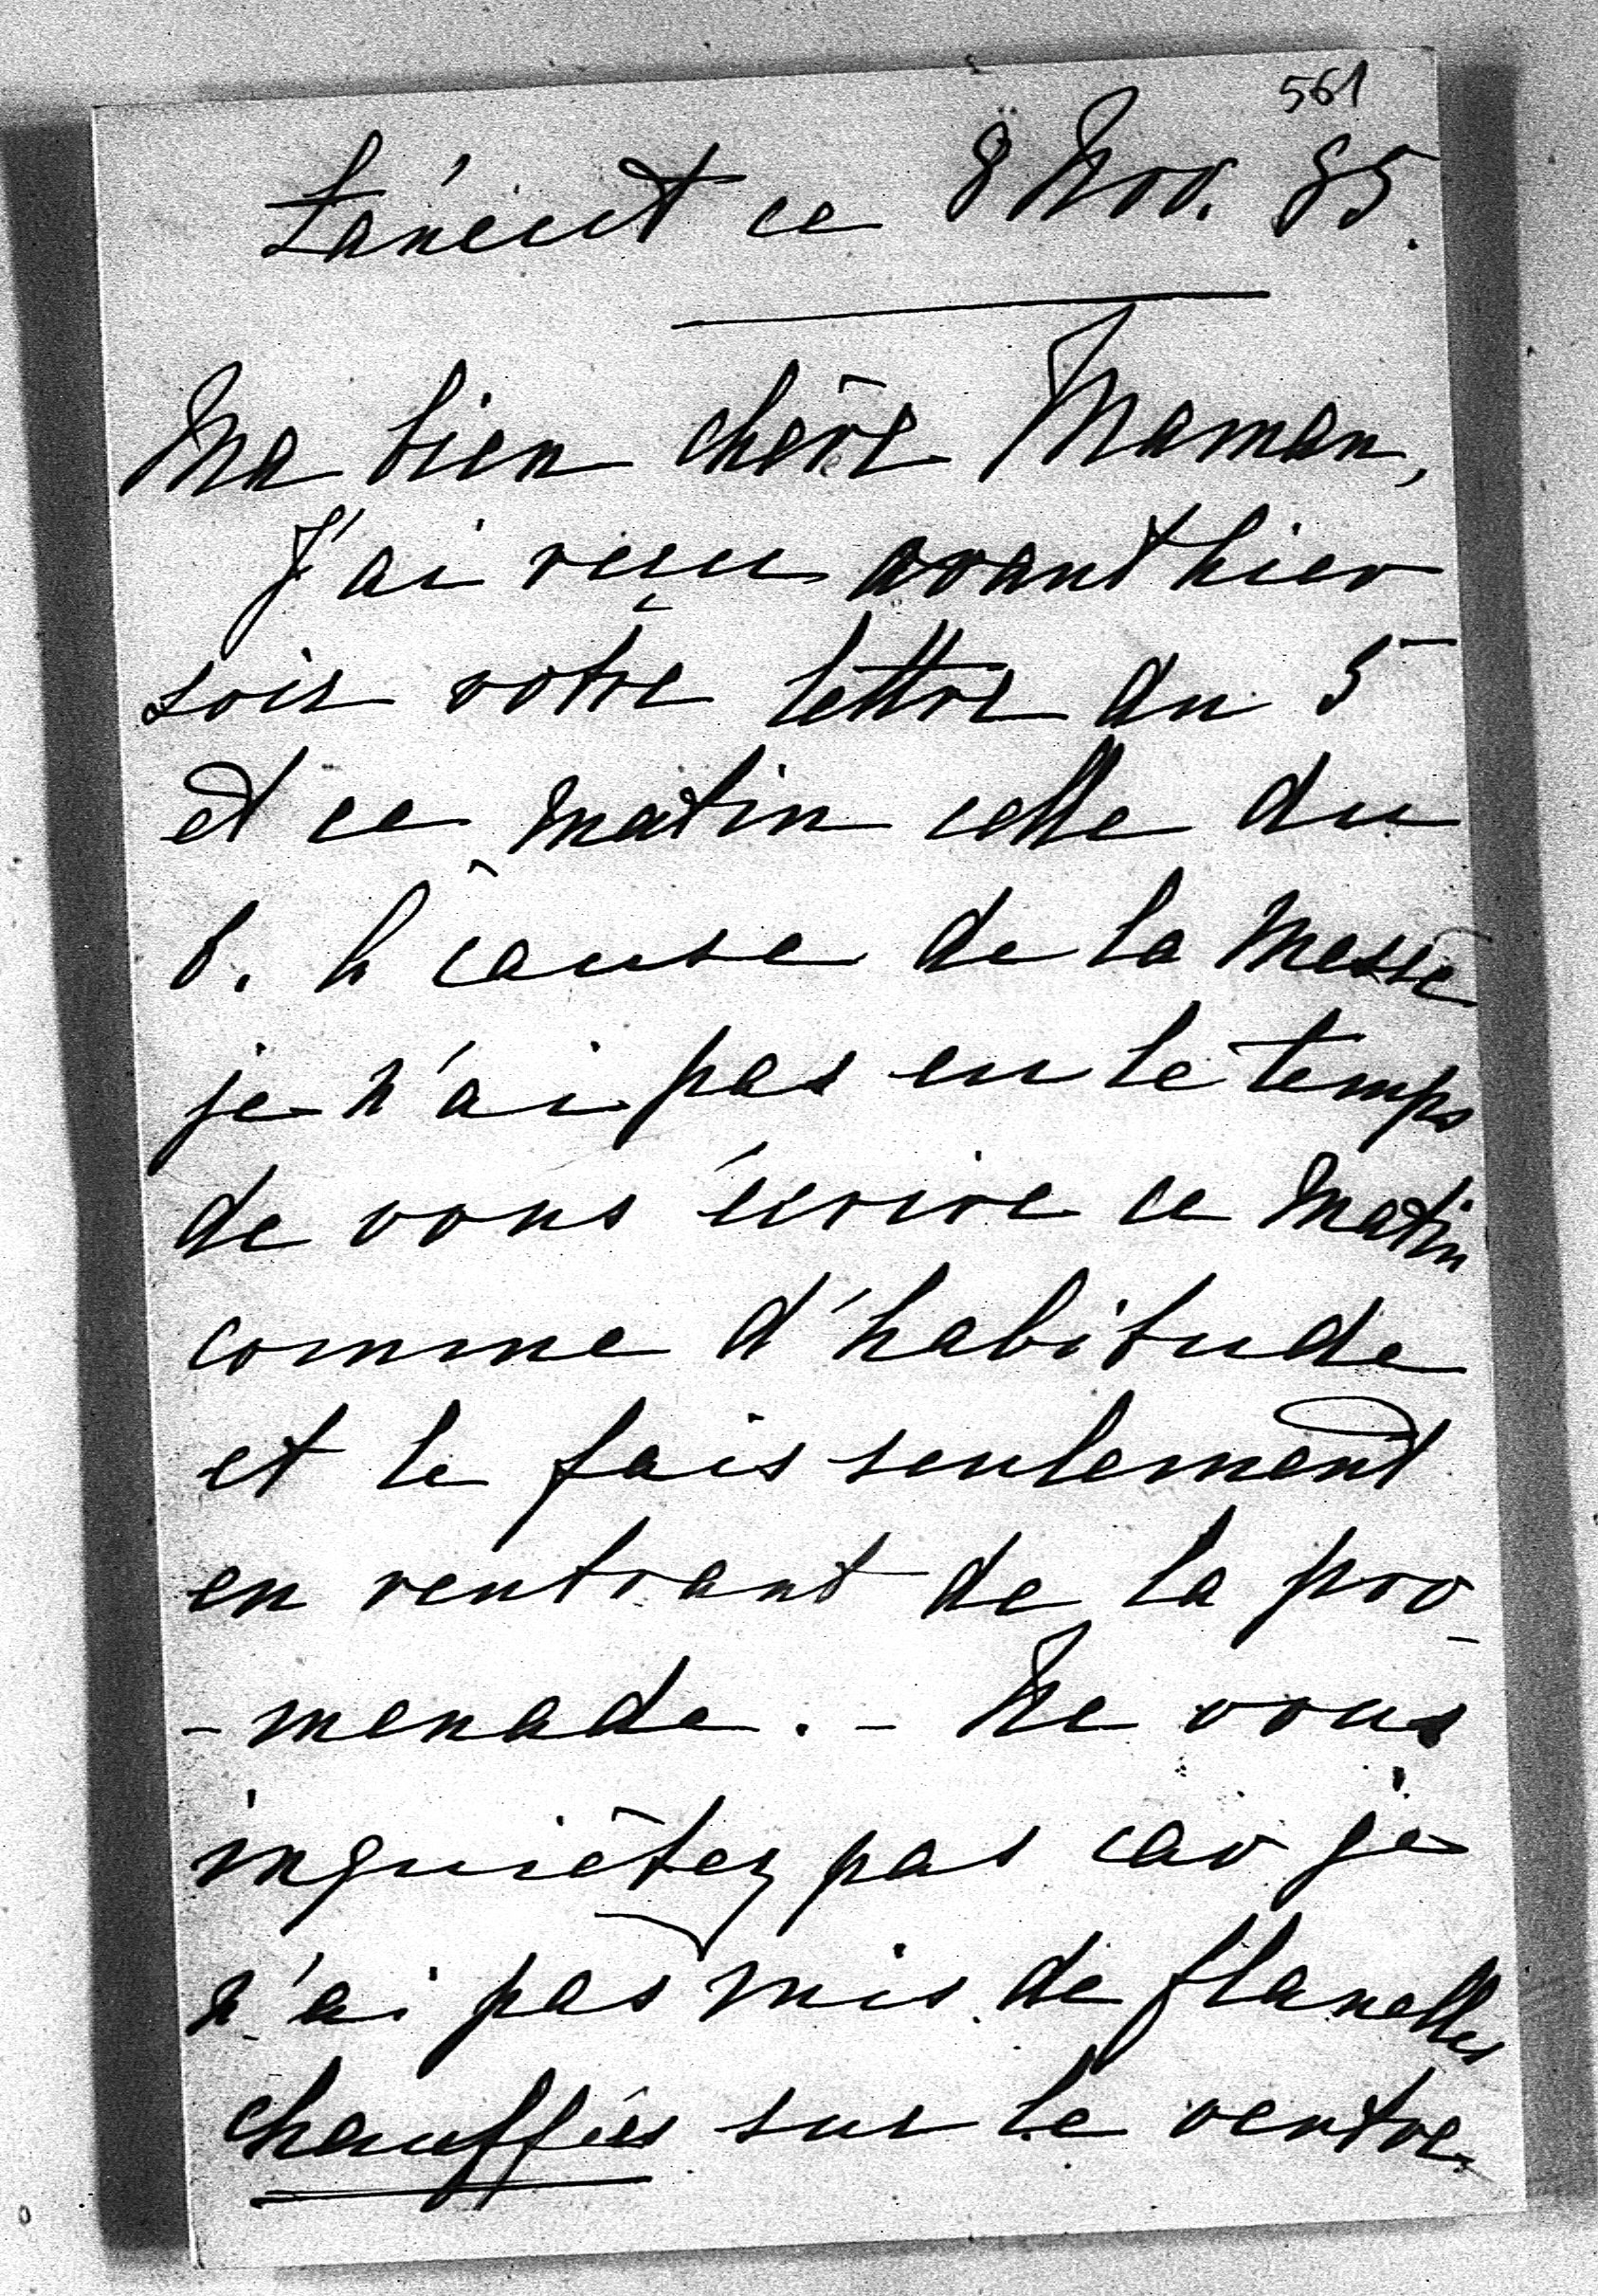 561
Łańcut ce 8 Nov. 85.
Ma bien chère Maman,
J'ai reçu avant hier
soir votre lettre du 5
et ce matin celle du
6. À cause de la messe
je n'ai pas eu le temps
de vous écrire ce matin
comme d'habitude
et le fais seulement
en rentrant de la pro-
-menade. - Ne vous
inquiètez pas car je
n'ai pas mis de flanelles
chauffées sur le ventre